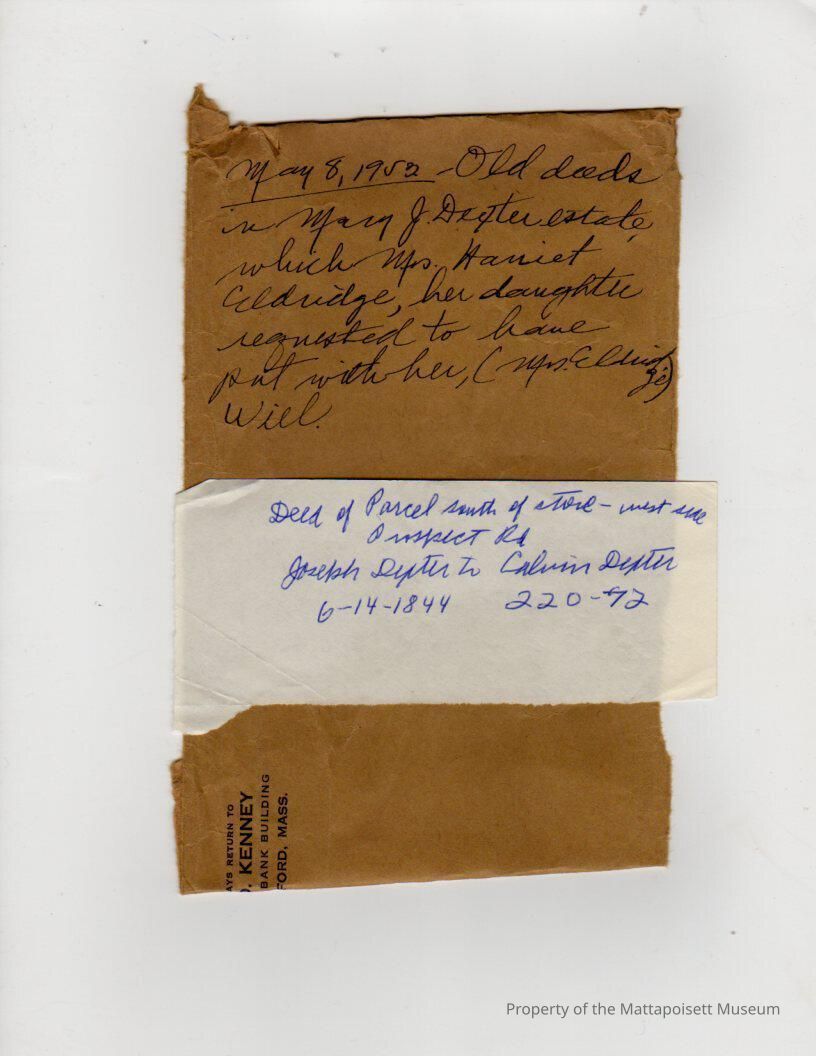 May 8, 1952 - Old deeds
in Mary J. Dexter estate,
which Mrs. Harriet
Eldridge, her daughter
requested to have
put with her, (Mrs. Eldridge)
Will.
Deed of Parcel south of store - west side
Prospect Rd
Joseph Dexter to Calvin Dexter
6-14-1844 220-92
AYS RETURN TO
KENNEY
BANK BUILDING
FORD, MASS.
Property of the Mattapoisett Museum